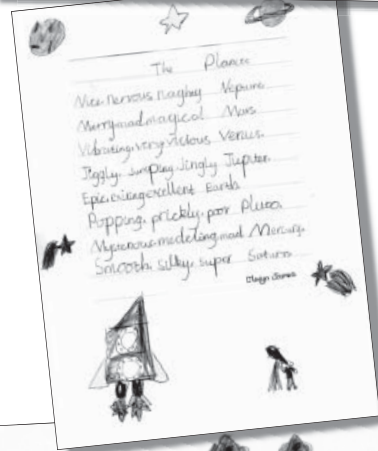 The Planets
Nice, nervous, naughty Neptune
Merry mad magical Mars
Vibrating, very vicious Venus.
Jiggly, jumping, jingly Jupiter.
Epic, exciting excellent Earth
Popping, prickly, poor Pluto.
Mysterious, modeling, mad Mercury.
Smooth, silky, super Saturn
James